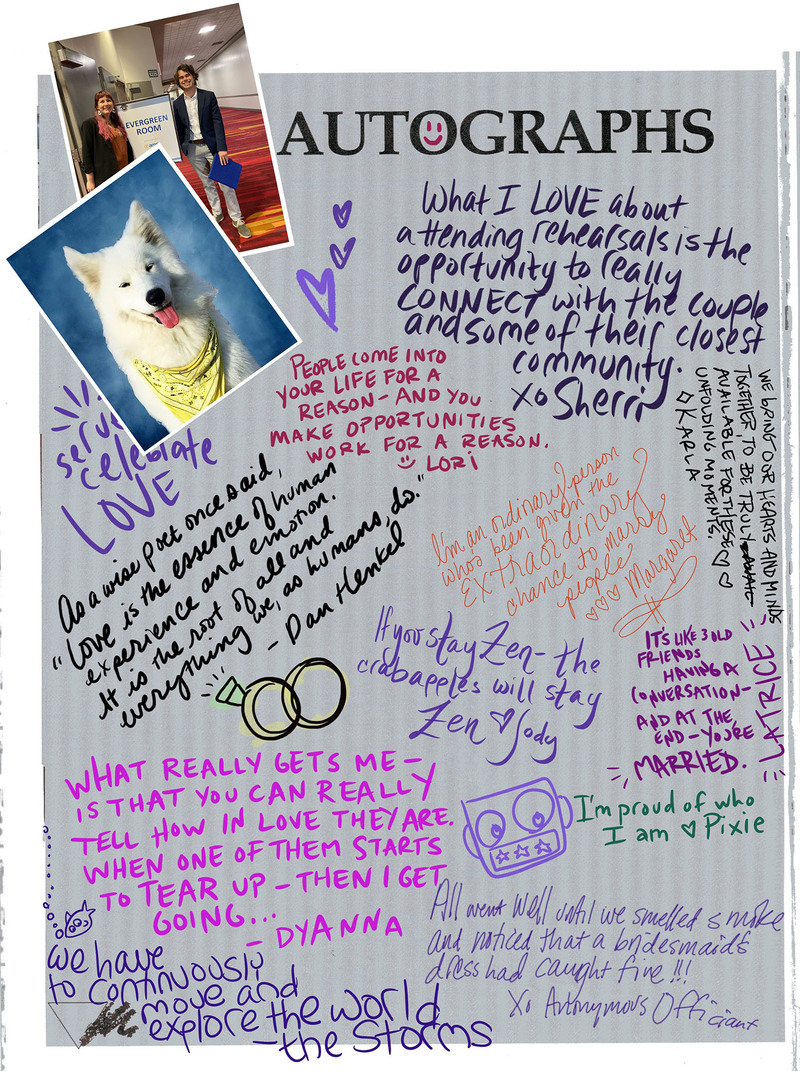 EVERGREEN
ROOM
AUTOGRAPHS
What I LOVE about
attending rehearsals is the
opportunity to really
CONNECT with the couple
and some of their closest
community.
xo Sherri
PEOPLE COME INTO
YOUR LIFE FOR A
REASON - AND YOU
MAKE OPPORTUNITIES
WORK FOR A REASON.
LORI
WE BRING OUR HEARTS AND MINDS
TOGETHER, TO BE TRULY
AVAILABLE FOR THESE
UNFOLDING MOMENTS.
KARLA
serve
celebrate
LOVE
As a wise poet once said,
"Love is the essence of human
experience and emotion.
It is the root of all and
everything we, as humans, do."
- Dan Henkel
I'm an ordinary person
who's been given the
EXTRAORDINARY
chance to marry
people
Margaret
If you stay Zen - the
crabapples will stay
Zen Jody
IT'S LIKE 3 OLD
FRIENDS
HAVING A
CONVERSATION-
AND AT THE
END - YOU'RE
MARRIED.
LATRICE
WHAT REALLY GETS ME -
IS THAT YOU CAN REALLY
TELL HOW IN LOVE THEY ARE.
WHEN ONE OF THEM STARTS
TO TEAR UP - THEN I GET
GOING...
- DYANNA
I'm proud of who
I am Pixie
All went well until we smelled smoke
and noticed that a bridesmaid's
dress had caught fire!!!
Xo Anonymous Officiant
we have
to continuously
move and
explore the world
- the Storms